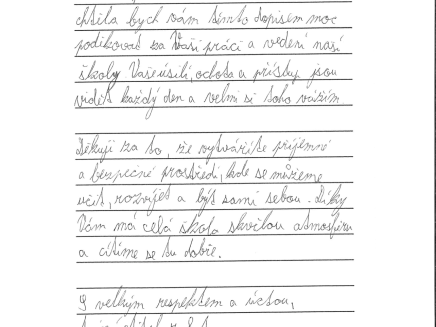 chtěla bych vám tímto dopisem moc
poděkovat za Vaši práci a vedení naší
školy Vaše úsilí, ochota a přístup jsou
vidět každý den a velmi si toho vážím.
Děkuji za to, že vytváříte příjemné
a bezpečné prostředí, kde se můžeme
učit, rozvíjet a být sami sebou. Díky
Vám má celá škola skvělou atmosféru
a cítíme se tu dobře.
S velkým respektem a úctou,